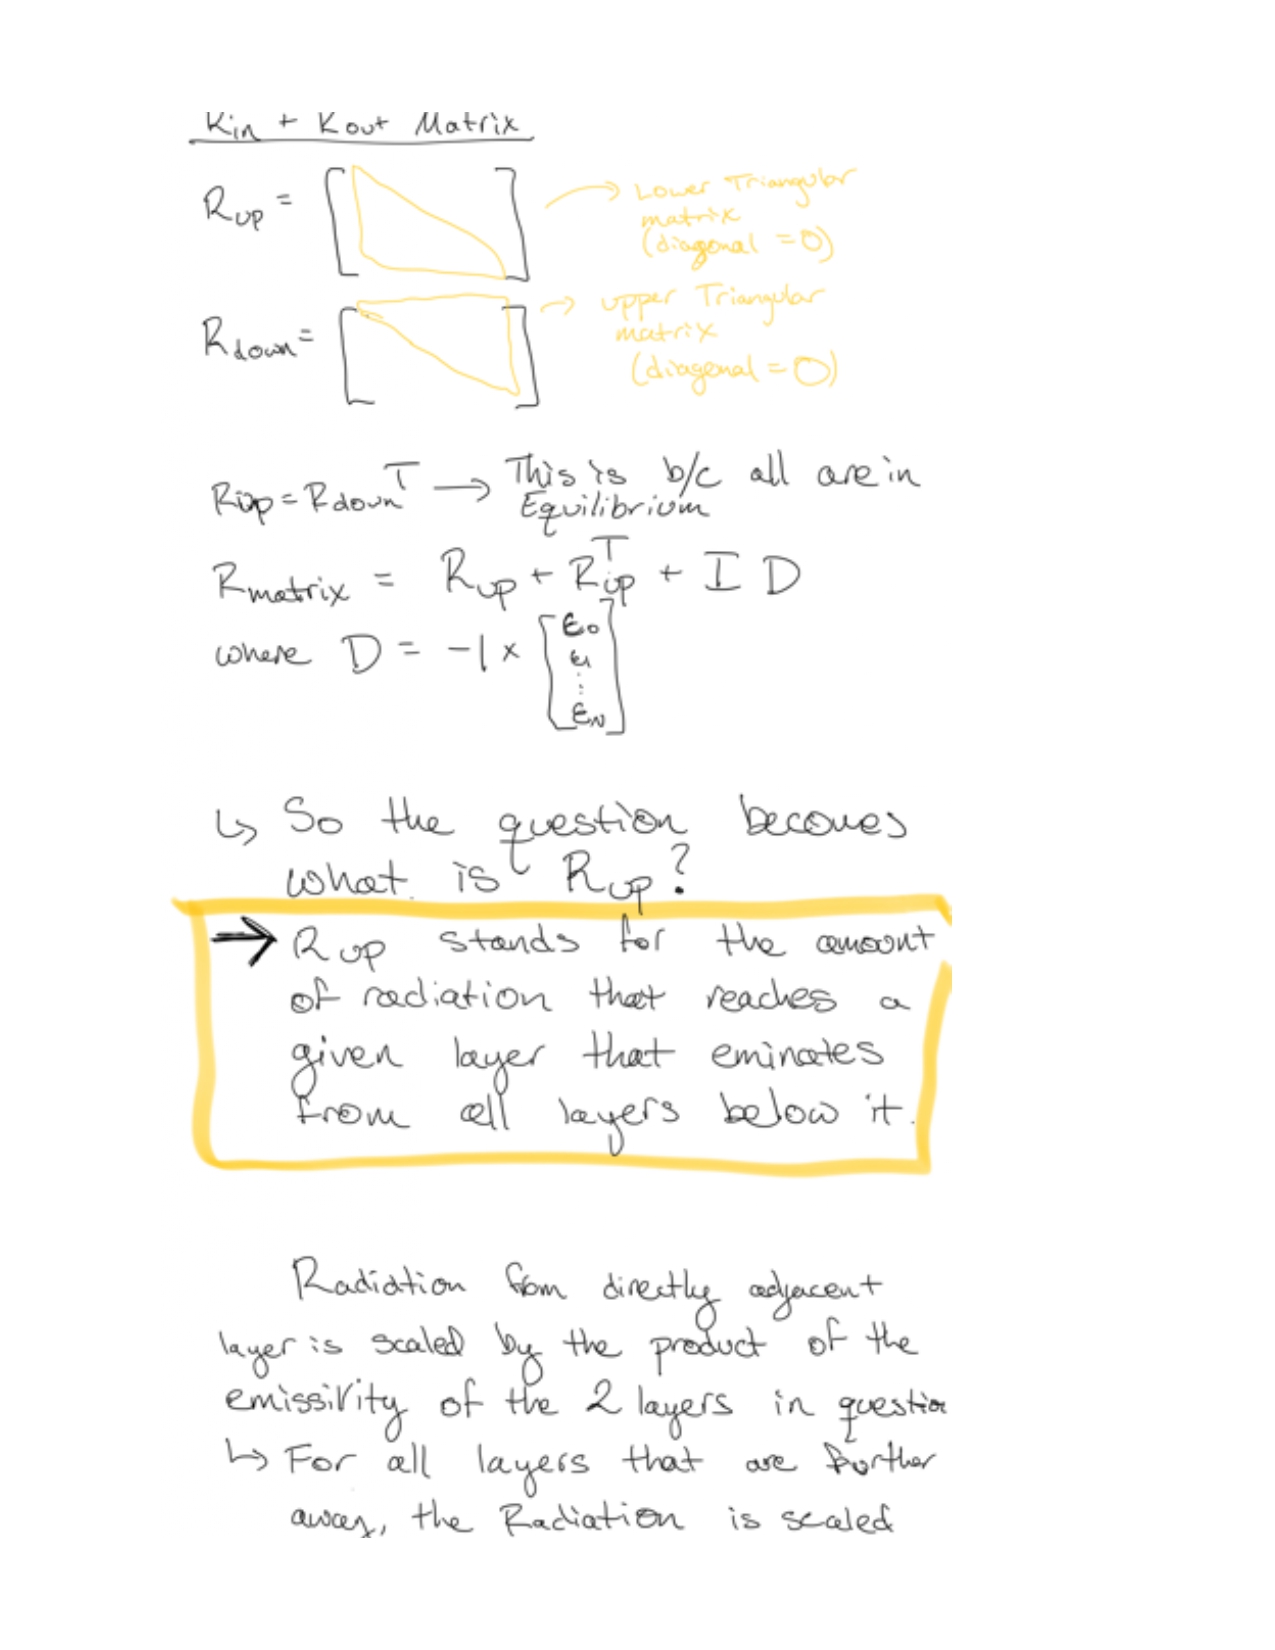 Kin + Kout Matrix
Rup = [ ] → Lower Triangular
matrix
(diagonal = 0)
Rdown = [ ] → upper Triangular
matrix
(diagonal = 0)
Rup = Rdown^T → This is b/c all are in
Equilibrium
Rmatrix = Rup + Rup^T + I D
where D = -1 × [ε0
ε1
⋮
εN]
↳ So the question becomes
what is Rup?
→ Rup stands for the amount
of radiation that reaches a
given layer that eminates
from all layers below it.
Radiation from directly adjacent
layer is scaled by the product of the
emissivity of the 2 layers in question
↳ For all layers that are further
away, the Radiation is scaled